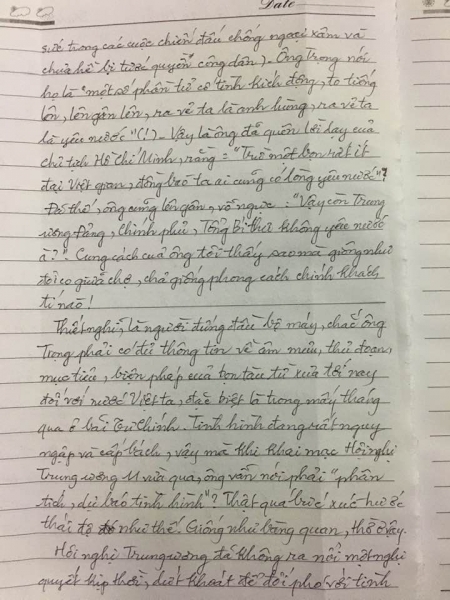 Date
sức trong các cuộc chiến đấu chống ngoại xâm và
chưa hề bị tước quyền công dân). Ông Trọng nói
họ là "một số phần tử có tính kích động, to tiếng
lên, lên gân lên, ra vẻ ta là anh hùng, ra vẻ ta
là yêu nước"(!). Vậy là ông đã quên lời dạy của
chủ tịch Hồ Chí Minh, rằng: "Trừ một bọn rất ít
đại Việt gian, đồng bào ta ai cũng có lòng yêu nước"?
thế, ông cũng lên gân, vỗ ngực: "Vậy còn Trung
ương Đảng, Chính phủ, Tổng Bí thư không yêu nước
à?". Cung cách của ông tôi thấy sao mà giống như
đôi co giữa chợ, chả giống phong cách chính khách
tí nào!
Thiết nghĩ, là người đứng đầu bộ máy, chắc ông
Trọng phải có đủ thông tin về âm mưu, thủ đoạn,
mục tiêu, biện pháp của bọn tàu từ xưa tới nay
đối với nước Việt ta, đặc biệt là trong mấy tháng
qua ở bãi Tư Chính. Tình hình đang rất nguy
ngập và cấp bách, vậy mà khi khai mạc Hội nghị
Trung ương 11 vừa qua, ông vẫn nói phải "phân
tích, dự báo tình hình"? Thật quá bức xúc trước
thái độ như thế. Giống như bàng quan, thờ ơ vậy.
Hội nghị Trung ương đã không ra nổi một nghị
quyết kịp thời, dứt khoát để đối phó với tình